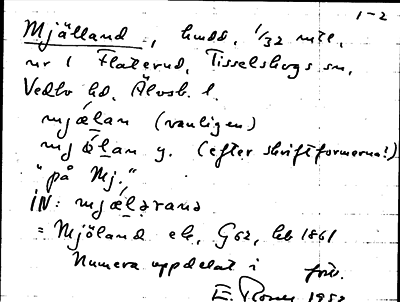 1-2
Mjälland, hmd, 1/32 mtl,
nr 1 Flaterud, Tisselskogs sn,
Vedbo hd, Älvsb. l.
mjǽlan (vanligen)
mjǿlan y. (efter skriftformerna!)
"på Mj."
IN: mjǽlarana
= Mjöland ek, G62, Leb 1861
Numera uppdelat i
E. 1952